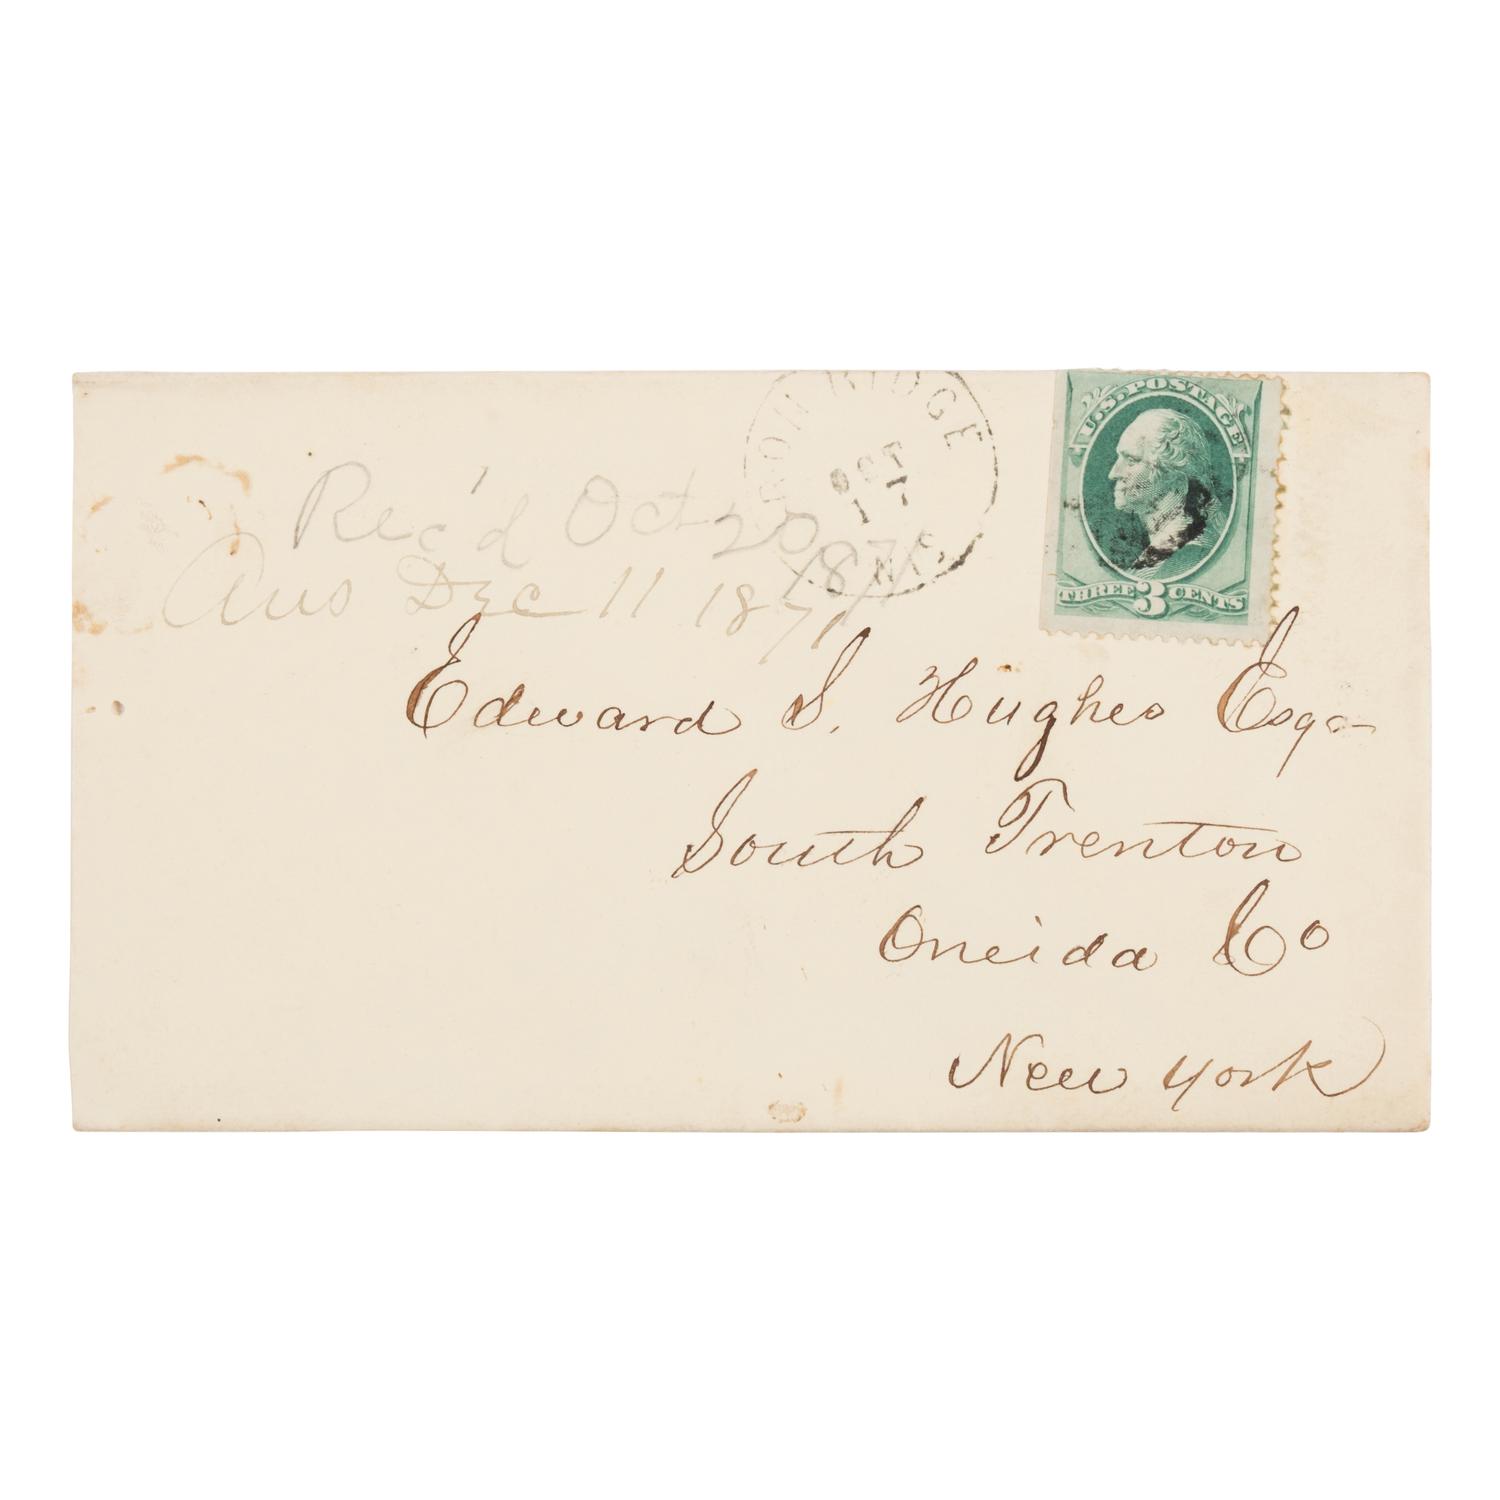 RON RIDGE
OCT
17
N.Y.
U.S. POSTAGE
THREE 3 CENTS
Rec'd Oct 20 1871
Ans Dec 11 1871
Edward S. Hughes Esq
South Trenton
Oneida Co
New York